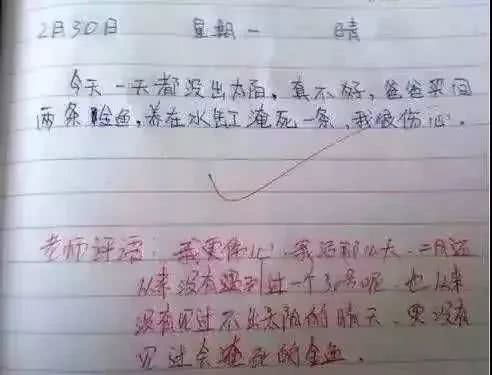 2月30日 星期一 晴
今天一天都没出太阳,真不好,爸爸买回
两条鱼,养在水缸了淹死一条,我很伤心。
老师评语:我更伤心,我活那么大,二月还
从来没有遇到过一个30号呢,也从来
没有见过不出太阳的晴天,更没有
见过会淹死的金鱼。